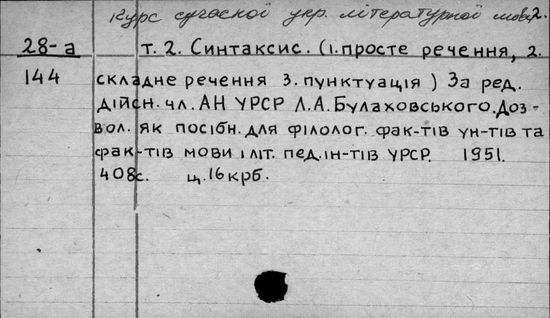 Курс сучасної укр. літературної мови. 2.
28-а т. 2. Синтаксис. (1. просте речення, 2.
144 складне речення 3. пунктуація) За ред.
дійсн. чл. АН УРСР Л.А. Булаховського. Доз-
вол. як посібн. для філолог. фак-тів ун-тів та
фак-тів мови і літ. пед. ін-тів УРСР. 1951.
408с. ц. 16 крб.